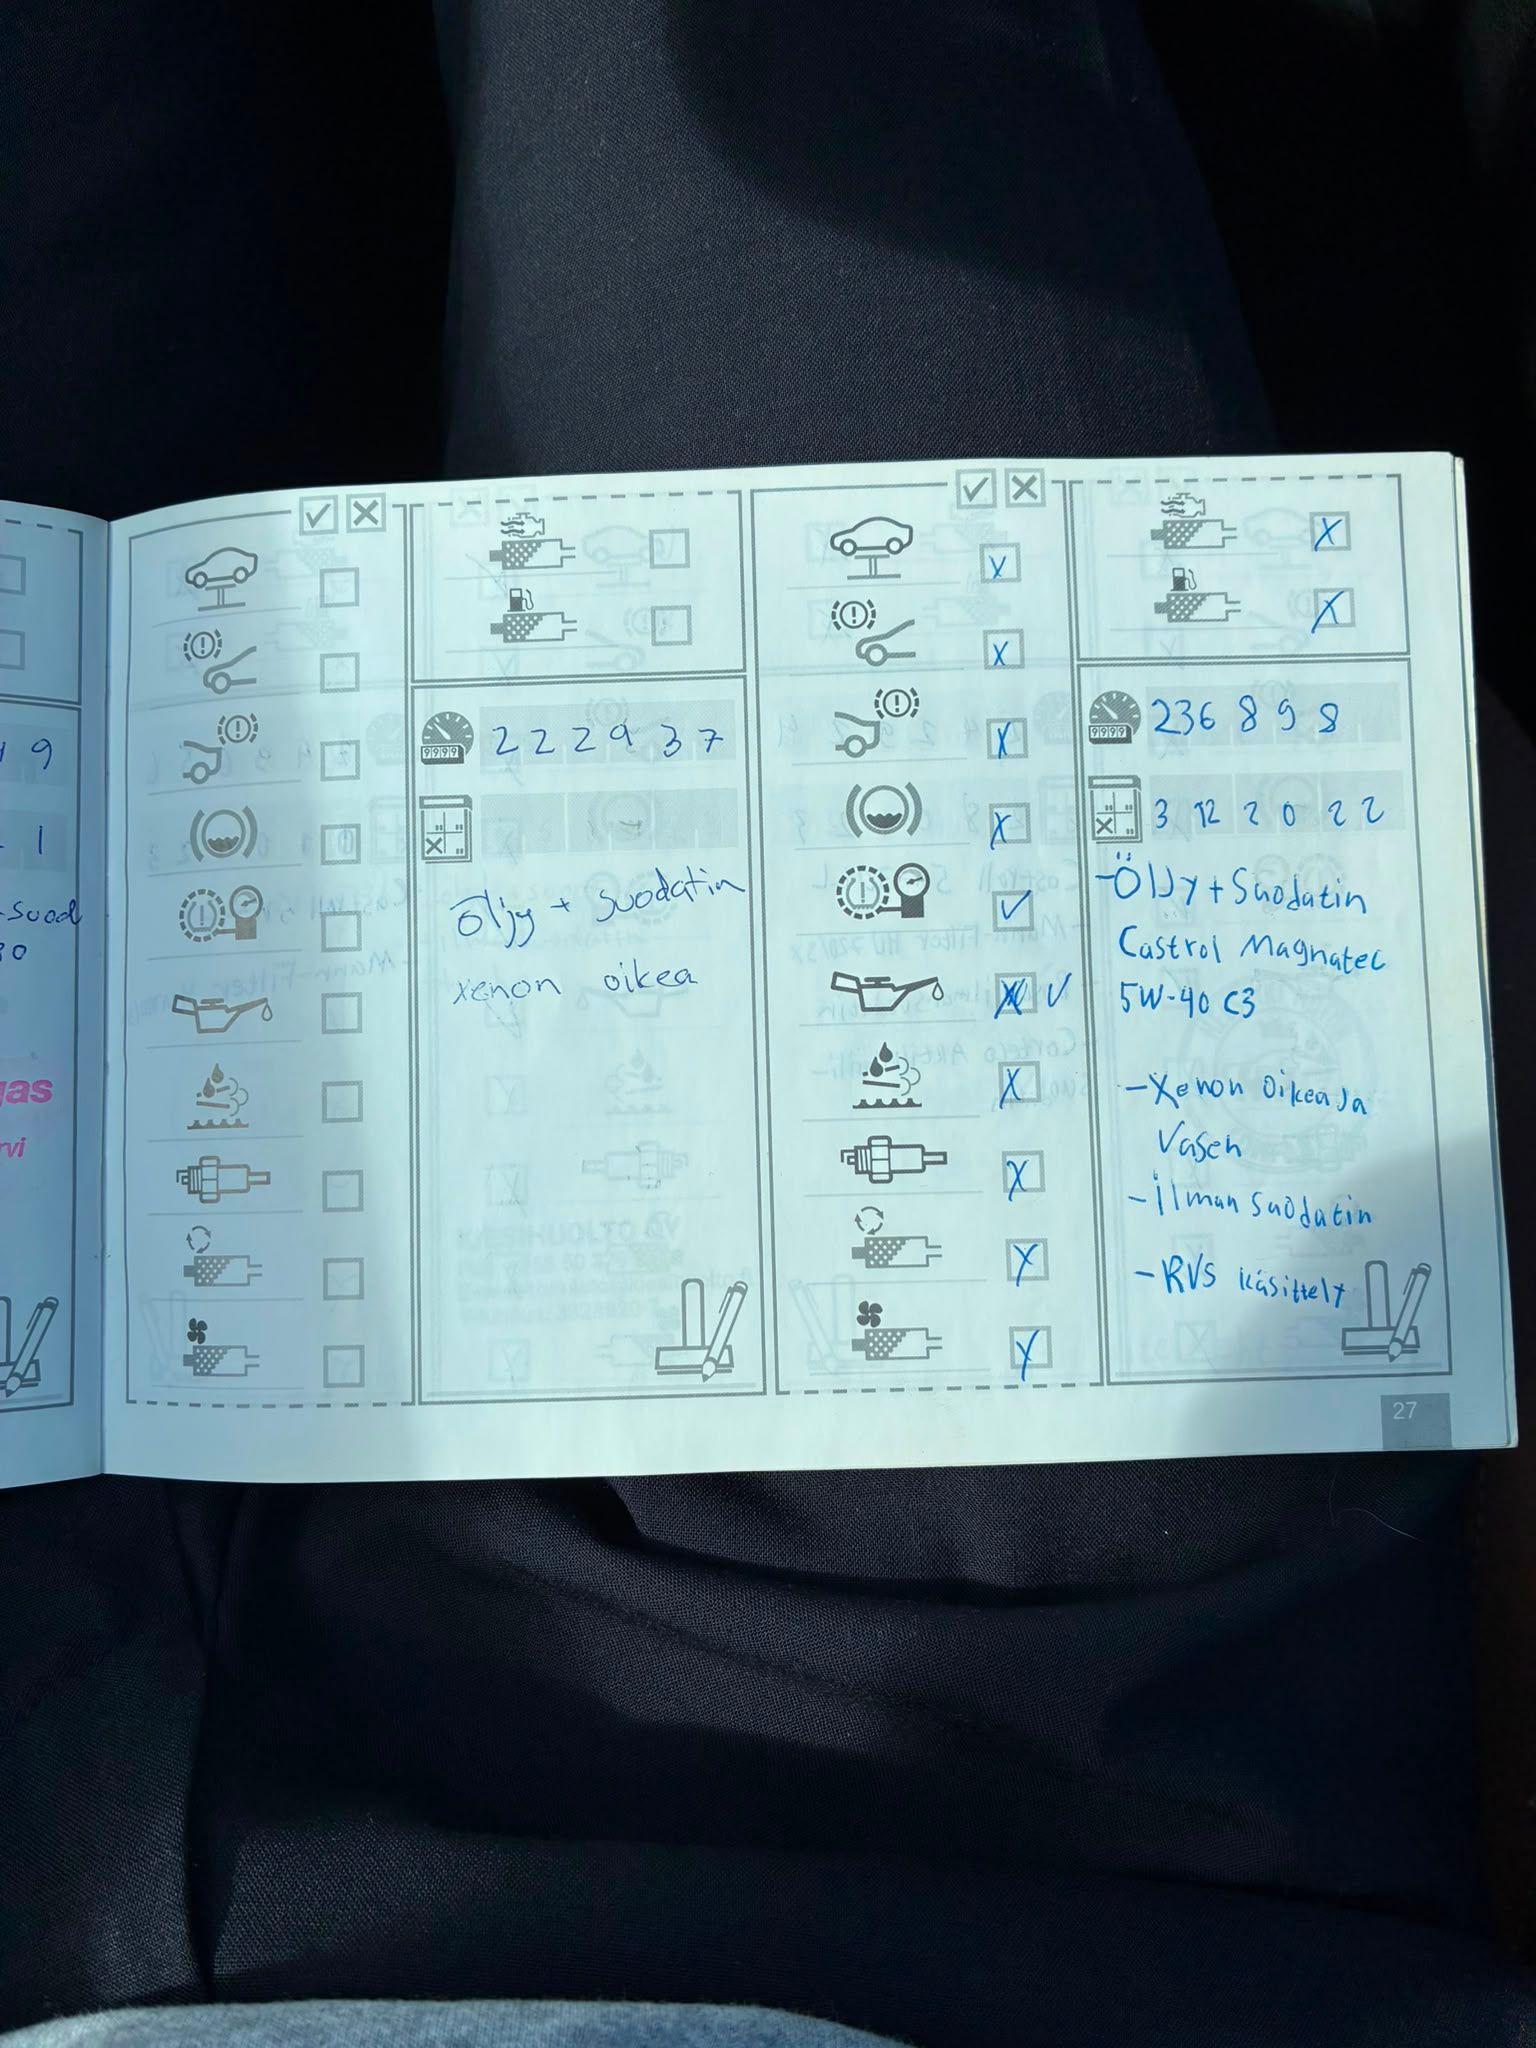 9
1
-suod
30
gas
rvi
222937
Öljy + suodatin
xenon oikea
236898
3 12 2022
-Öljy + Suodatin
Castrol Magnatec
5W-40 C3
- Xenon oikea ja
Vasen
- ilman suodatin
- RVS käsittely
27